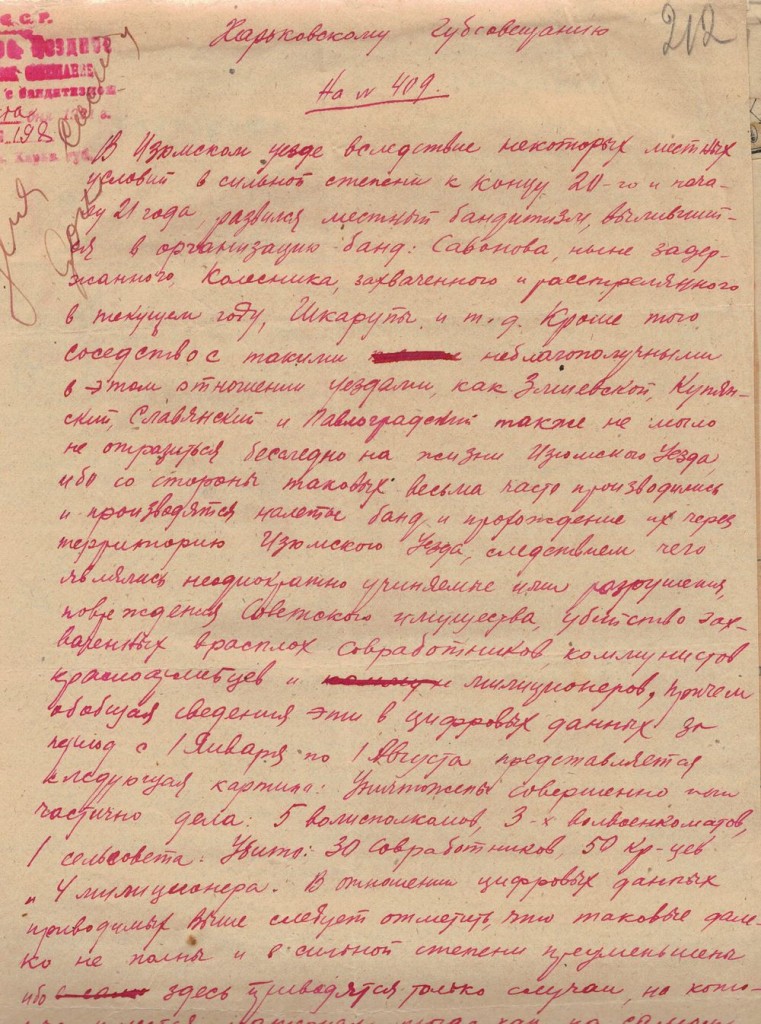 С. С. Р.
с бандитизмом
198
212
Харьковскому Губсовещанию
На № 409.
В Изюмском уезде вследствие некоторых местных
условий в сильной степени к концу 20-го и нача-
лу 21 года, развился местный бандитизм, вылившийт-
ся в организацию банд: Савонова, ныне задер-
жанного, Колесника, захваченного и расстрелянного
в текущем году, Шкарупы и т. д. Кроме того
соседство с такими неблагополучными
в этом отношении уездами, как Змиевской, Купян-
ский, Славянский и Павлоградский также не могло
не отразиться бесследно на жизни Изюмского Уезда,
ибо со стороны таковых весьма часто производились
и производятся налеты банд и прохождение их через
территорию Изюмского Уезда, следствием чего
являлись неоднократно учиняемые ими разрушения,
повреждения Советского имущества, убийство зах-
ваченных врасплох совработников, коммунистов
красноармейцев и милиционеров, причем
обобщая сведения эти в цифровых данных за
период с 1 Января по 1 Августа представляется
следующая картина: Уничтожены совершенно или
частично дела: 5 волисполкомов, 3-х волвоенкоматов,
1 сельсовета. Убито: 30 Совработников, 50 кр-цев
и 4 милиционера. В отношении цифровых данных
приводимых выше следует отметить, что таковые дале-
ко не полны и в сильной степени преуменьшены
ибо здесь приводятся только случаи, на кото-